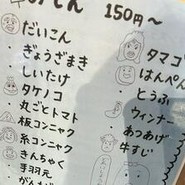 おでん 150円〜
だいこん
ぎょうざまき
しいたけ
タケノコ
丸ごとトマト
板コンニャク
糸コンニャク
きんちゃく
手羽元
タマゴ
はんぺん
とうふ
ウィンナー
あつあげ
牛すじ